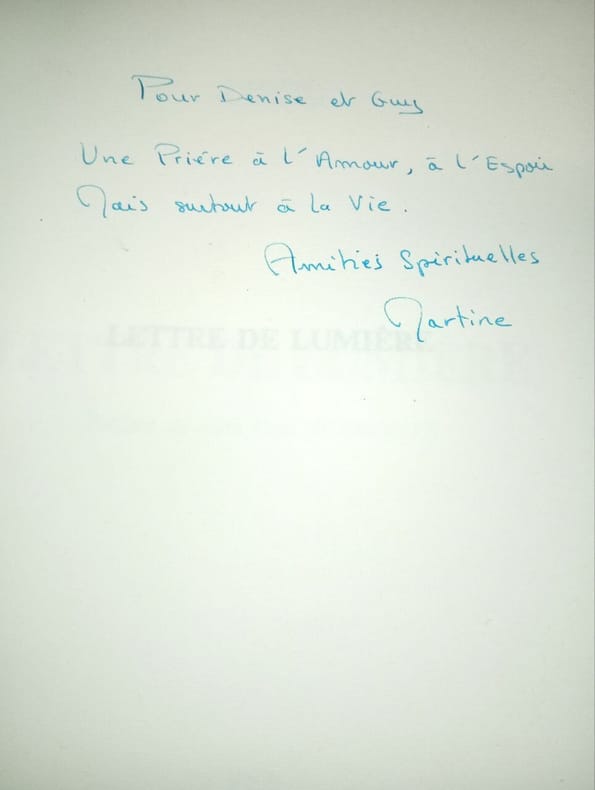 Pour Denise et Guy
Une Prière à l'Amour, à l'Espoir
Mais surtout à la Vie.
Amitiés Spirituelles
Martine
LETTRE DE LUMIÈRE